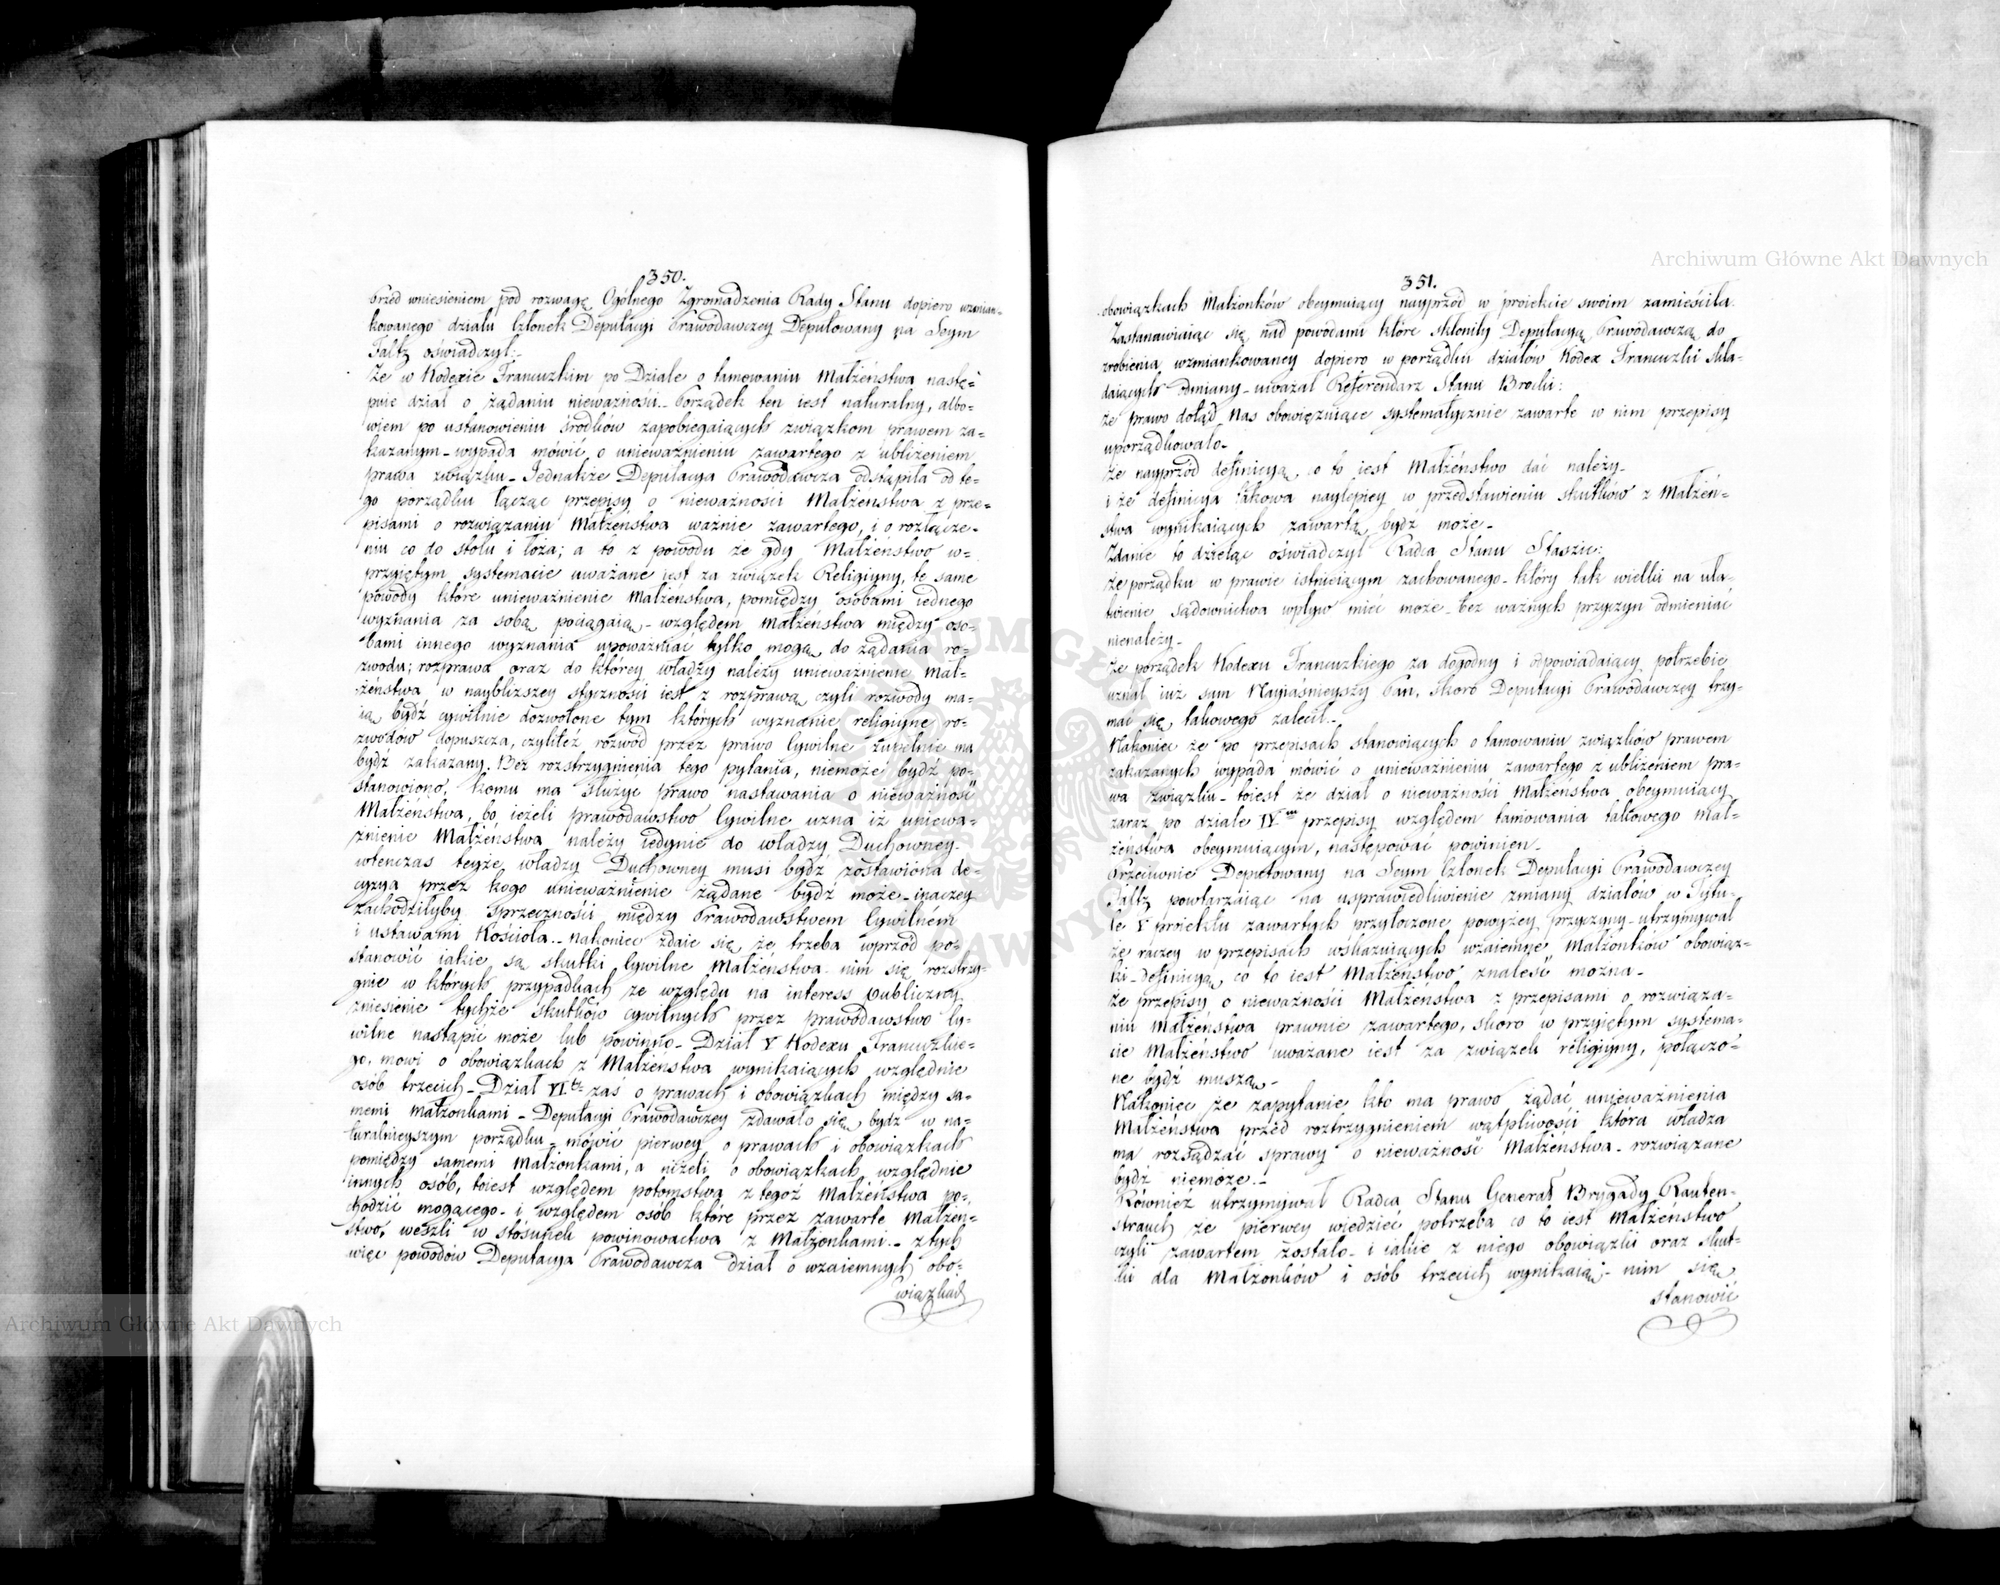 350.
Przed wniesieniem pod rozwagę Ogólnego Zgromadzenia Rady Stanu dopiero wzmian-
kowanego działu Członek Deputacyi Prawodawczey Deputowany na Seym
Faltz oświadczył:
Że w Kodexie Francuzkim po Dziale o tamowaniu Małżeństwa nastę-
puie dział o żądaniu nieważności. Porządek ten iest naturalny, albo-
wiem po ustanowieniu środków zapobiegaiących związkom prawem za-
kazanym - wypada mówić o unieważnieniu zawartego z ubliżeniem
prawa związku - Jednakże Deputacya Prawodawcza odstąpiła od te-
go porządku łącząc przepisy o nieważności Małżeństwa z prze-
pisami o rozwiązaniu Małżeństwa ważnie zawartego, i o rozłącze-
niu co do stołu i łoża; a to z powodu że gdy Małżeństwo w-
przyiętym systemacie uważane iest za związek Religiyny, te same
powody które unieważnienie Małżeństwa, pomiędzy osobami iednego
wyznania za sobą pociągaią - względem Małżeństwa między oso-
bami innego wyznania upoważniać tylko mogą do żądania ro-
zwodu; rozprawa oraz do którey władzy należy unieważnienie Mał-
żeństwa w naybliższey styczności iest z rozprawą czyli rozwody ma-
ią bydź cywilnie dozwolone tym których wyznanie religiyne ro-
zwodów dopuszcza, czyliteż rozwód przez prawo Cywilne zupełnie ma
bydź zakazany. Bez rozstrzygnienia tego pytania, niemoże bydź po-
stanowiono, komu ma służyć prawo nastawania o nieważność
Małżeństwa, bo ieżeli prawodawstwo Cywilne uzna iż uniewa-
żnienie Małżeństwa należy iedynie do władzy Duchowney -
wtenczas teyże władzy Duchowney musi bydź zostawiona de-
cyzya przez kogo unieważnienie żądane bydź może - inaczey
zachodziłyby sprzeczności między Prawodawstwem Cywilném
i ustawami Kościoła - nakoniec zdaie się że trzeba wprzód po-
stanowić iakie są skutki Cywilne Małżeństwa nim się rozstrzy-
gnie w których przypadkach ze względu na interess publiczny
zniesienie tychże skutków cywilnych przez prawodawstwo Cy-
wilne nastąpić może lub powinno - Dział V Kodexu Francuzkie-
go mówi o obowiązkach z Małżeństwa wynikaiących względnie
osób trzecich - Dział VIty zaś o prawach i obowiązkach między sa-
memi małżonkami - Deputacyi Prawodawczey zdawało się bydź w na-
turalnieyszym porządku - mówić pierwey o prawach i obowiązkach
pomiędzy samemi Małżonkami, a niżeli o obowiązkach względnie
innych osób, toiest względem potomstwa z tegoż Małżeństwa po-
chodzić mogącego - i względem osób które przez zawarte Małżeń-
stwo, weszli w stósunek powinowactwa z Małżonkami - z tych
więc powodów Deputacya Prawodawcza dział o wzaiemnych obo-
wiązkach
351.
obowiązkach Małżonków obeymuiący nayprzód w proiekcie swoim zamieściła.
Zastanawiaiąc się nad powodami które skłoniły Deputacyą Prawodawczą do
zrobienia wzmiankowaney dopiero w porządku działów Kodex Francuzki skła-
daiących odmiany - uważał Referendarz Stanu Brocki:
że prawo dotąd nas obowięzuiące systematycznie zawarte w nim przepisy
uporządkowało -
że nayprzód definicyą co to iest Małżeństwo dać należy -
i że definicya takowa naylepiey w przedstawieniu skutków z Małżeń-
stwa wynikaiących zawartą bydź może -
Zdanie to dzieląc oświadczył Radca Stanu Staszic:
że porządku w prawie istnieiącym zachowanego - który tak wielki na uła-
twienie sądownictwa wpływ mieć może - bez ważnych przyczyn odmieniać
nienależy -
że porządek Kodexu Francuzkiego za dogodny i odpowiadaiący potrzebie
uznał iuż sam Nayiaśnieyszy Pan, skoro Deputacyi Prawodawczey trzy-
mać się takowego zalecił -
Nakoniec że po przepisach stanowiących o tamowaniu związków prawem
zakazanych wypada mówić o unieważnieniu zawartego z ubliżeniem pra-
wa związku - toiest że dział o nieważności Małżeństwa obeymuiący
zaraz po dziale IVm przepisy względem tamowania takowego Mał-
żeństwa obeymuiącym, następować powinien -
Przeciwnie Deputowany na Seym Członek Deputacyi Prawodawczey
Faltz powtarzaiąc na usprawiedliwienie zmiany działów w Tytu-
le V proiektu zawartych przytoczone powyżey przyczyny - utrzymywał
że raczey w przepisach wskazuiących wzaiemne Małżonków obowiąz-
ki - definicyą co to iest Małżeństwo znaleść można -
że przepisy o nieważności Małżeństwa z przepisami o rozwiąza-
niu Małżeństwa prawnie zawartego, skoro w przyiętym systema-
cie Małżeństwo uważane iest za związek religiyny, połączo-
ne bydź muszą -
Nakoniec że zapytanie kto ma prawo żądać unieważnienia
Małżeństwa przed roztrzygnieniem wątpliwości która władza
ma rozsądzać sprawy o nieważność Małżeństwa - rozwiązane
bydź niemoże -
Również utrzymywał Radca Stanu Generał Brygady Rauten-
strauch że pierwey wiedzieć potrzeba co to iest Małżeństwo
czyli zawartem zostało - i iakie z niego obowiązki oraz skut-
ki dla Małżonków i osób trzecich wynikaią - nim się
stanowić
Archiwum Główne Akt Dawnych
Archiwum Główne Akt Dawnych